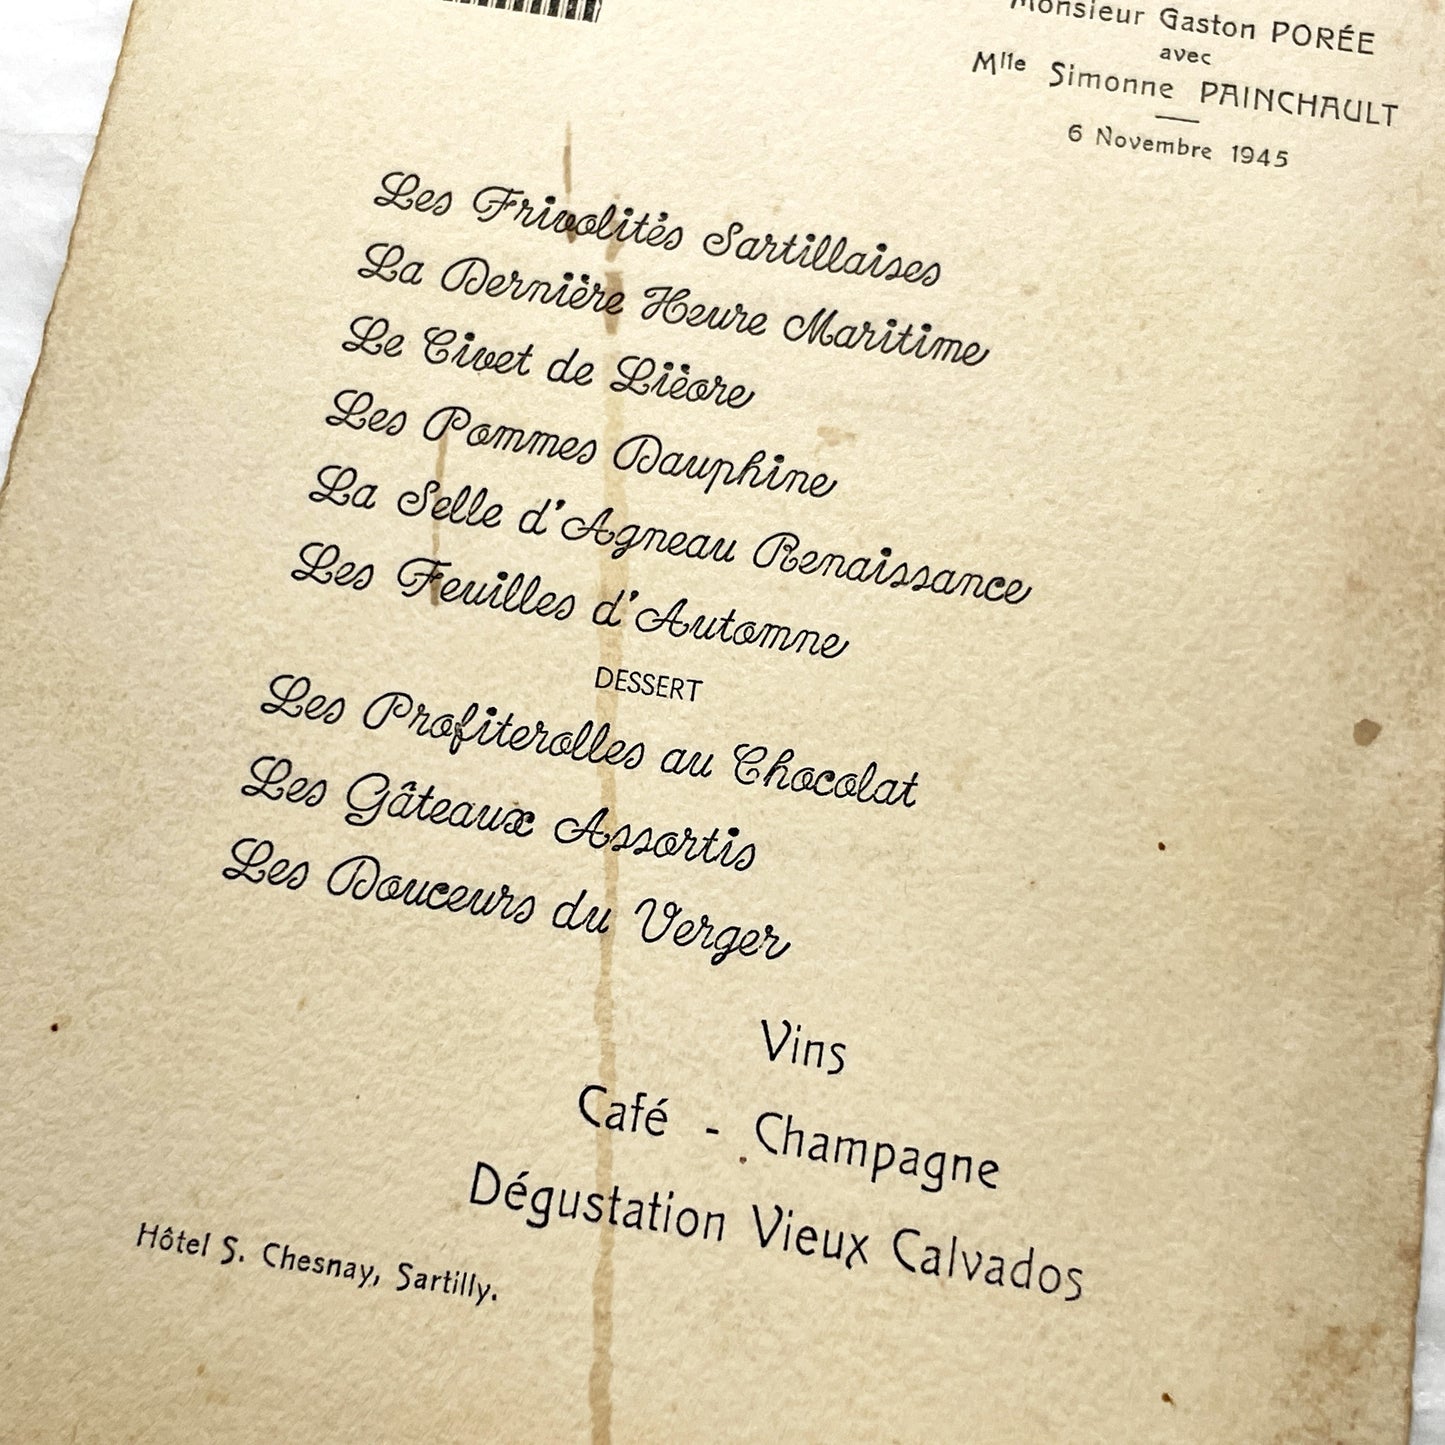 Monsieur Gaston PORÉE
avec
Mlle Simonne PAINCHAULT
6 Novembre 1945
Les Frivolités Sartillaises
La Dernière Heure Maritime
Le Civet de Lièvre
Les Pommes Dauphine
La Selle d'Agneau Renaissance
Les Feuilles d'Automne
DESSERT
Les Profiterolles au Chocolat
Les Gâteaux Assortis
Les Douceurs du Verger
Vins
Café - Champagne
Dégustation Vieux Calvados
Hôtel S. Chesnay, Sartilly.